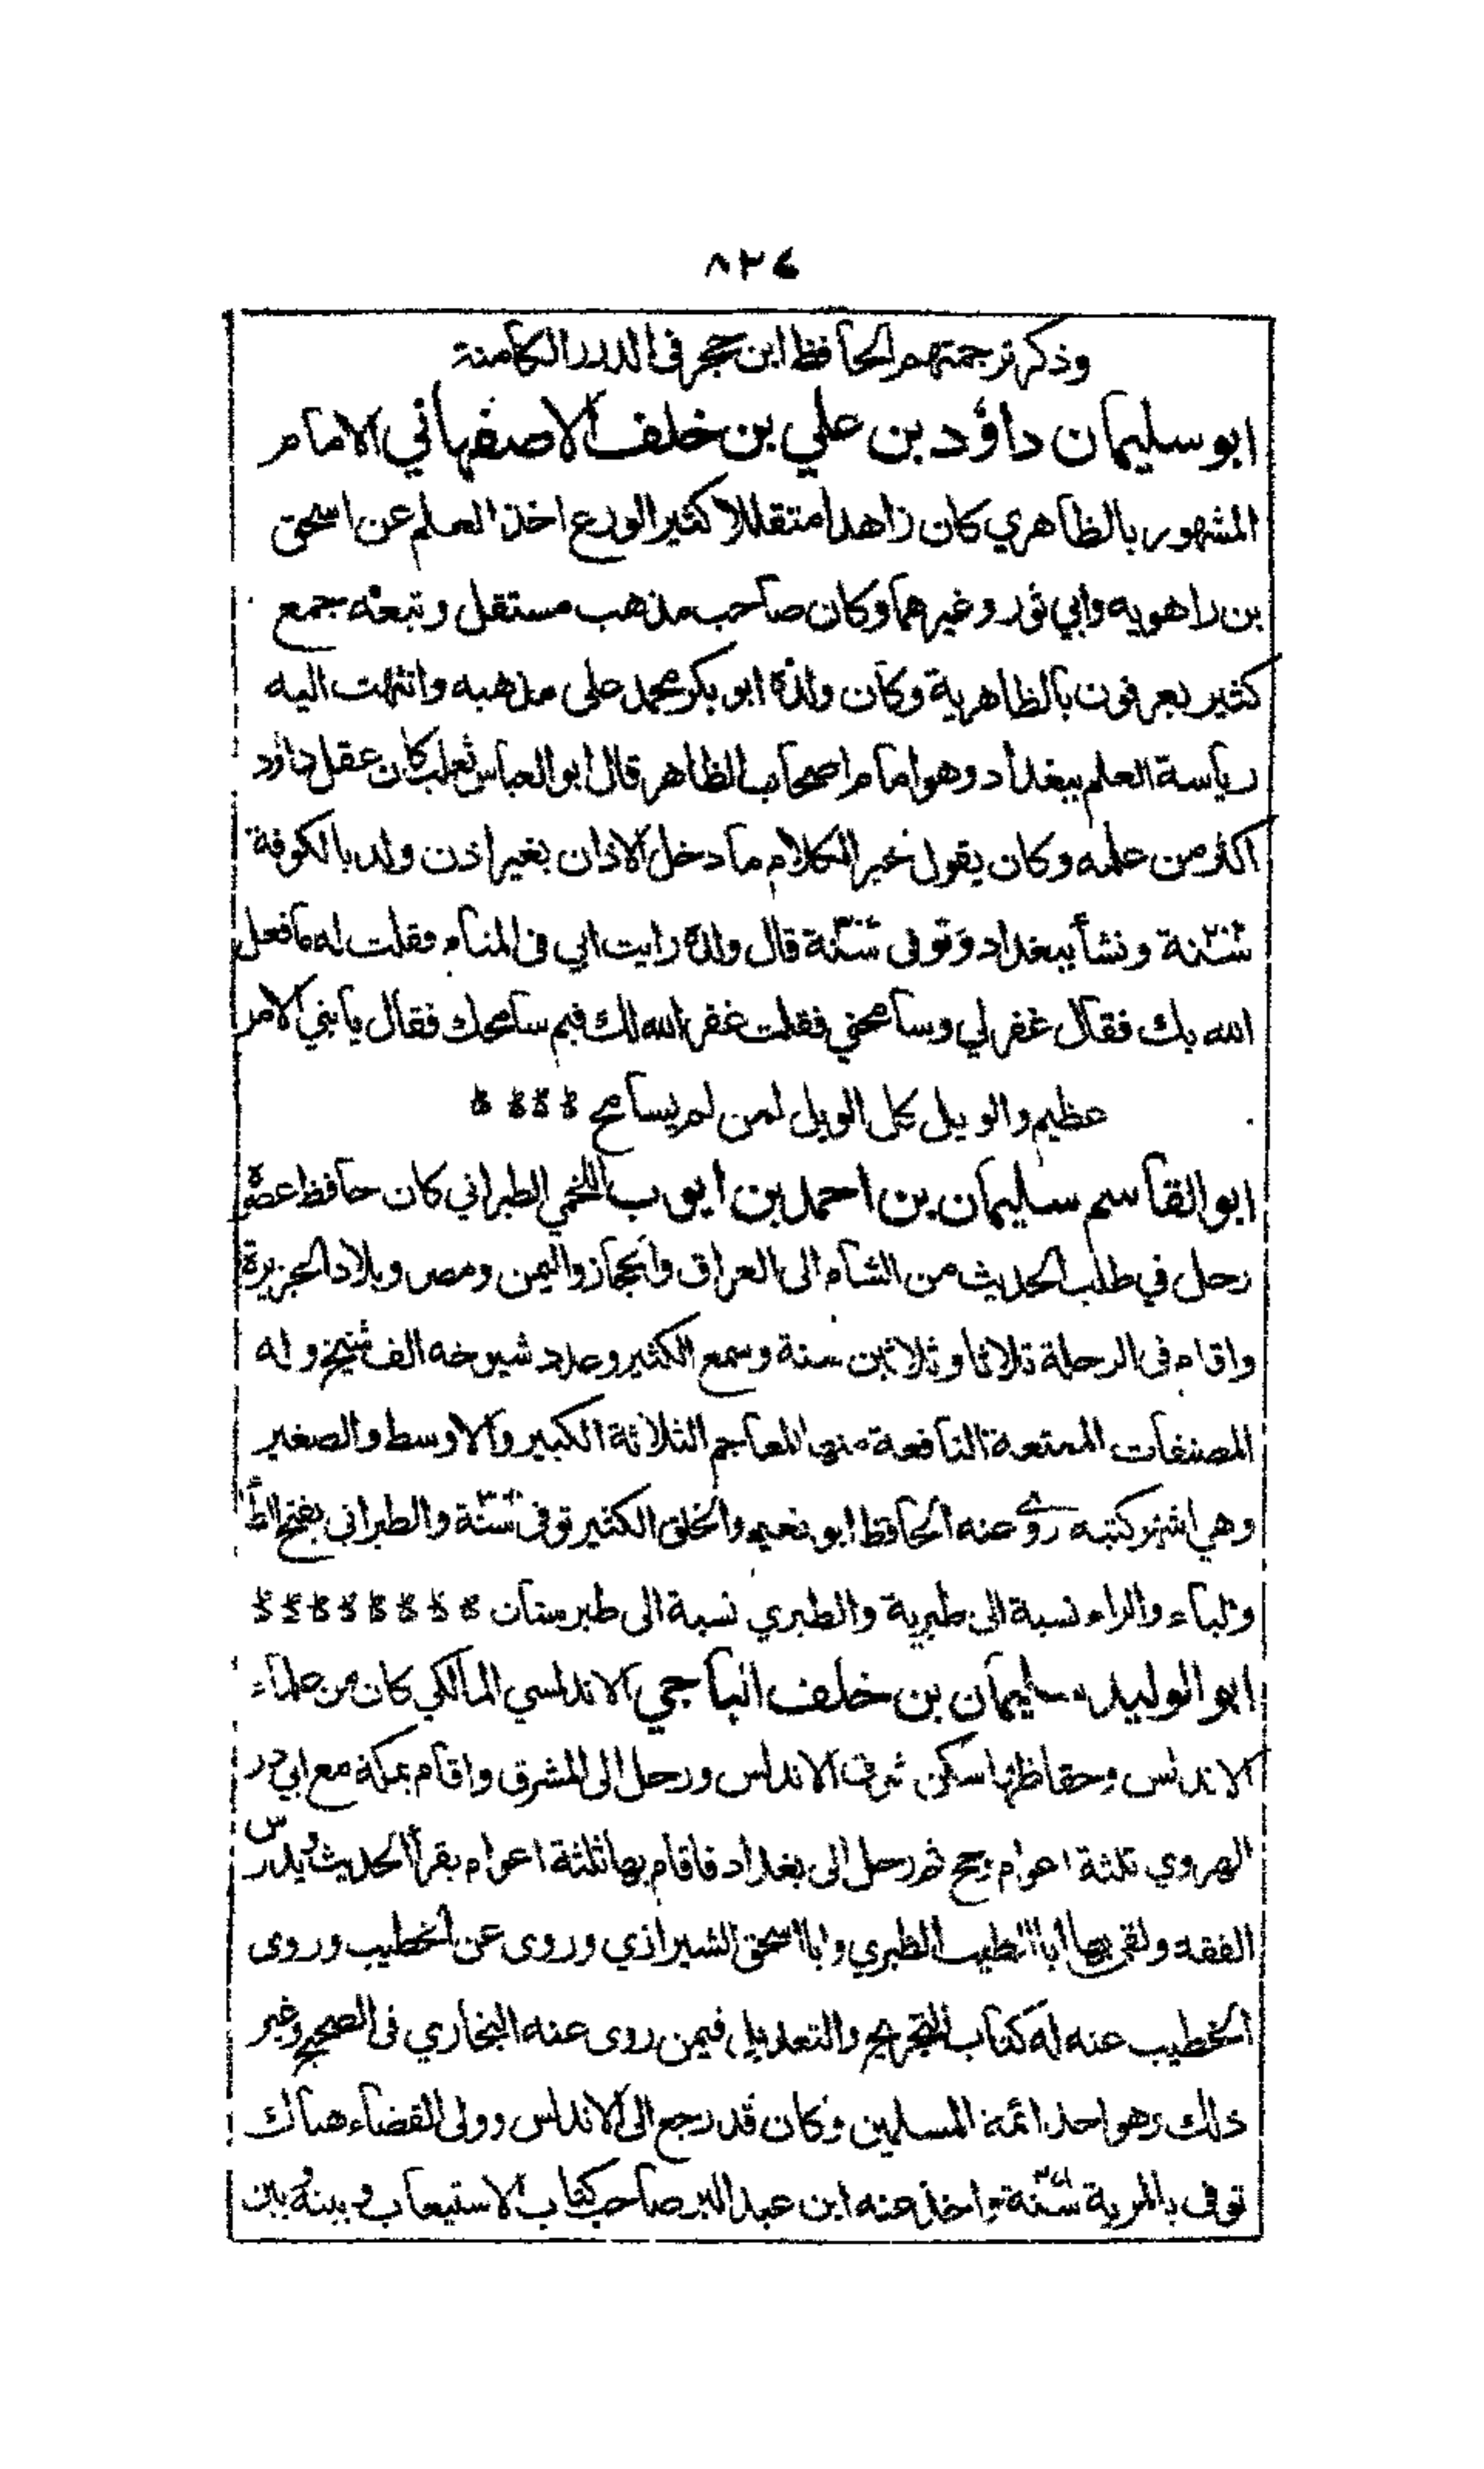 ٨٢٤
وذكر ترجمتهم الحافظ ابن حجر فى الدرر الكامنة
ابو سليمان داؤد بن علي بن خلف الاصفهاني الامام
المشهور بالظاهري كان زاهدا متقللا كثير الورع اخذ العلم عن اسحق
بن راهويه وابي ثور وغيرهما وكان صاحب مذهب مستقل وتبعه جمع
كثير يعرفون بالظاهرية وكان ولده ابو بكر محمد على مذهبه وانتهت اليه
رياسة العلم ببغداد وهو امام اصحاب الظاهر قال ابو العباس ثعلب كان عقل داؤد
اكثر من علمه وكان يقول خير الكلام ما دخل الاذان بغير اذن ولد بالكوفة
سنة ونشأ ببغداد وتوفى سنة قال ولده رايت ابي فى المنام فقلت له ما فعل
الله بك فقال غفر لي وسامحني فقلت غفر الله لك فبم سامحك فقال يا بني الامر
عظيم والويل كل الويل لمن لم يسامح
ابو القاسم سليمان بن احمد بن ايوب اللخمي الطبراني كان حافظ عصره
رحل في طلب الحديث من الشام الى العراق والحجاز واليمن ومصر وبلاد الجزيرة
واقام فى الرحلة ثلاثا وثلاثين سنة وسمع الكثير وعدد شيوخه الف شيخ وله
المصنفات الممتعة النافعة منها المعاجم الثلاثة الكبير والاوسط والصغير
وهي اشهر كتبه روى عنه الحافظ ابو نعيم والخلق الكثير توفى سنة والطبرانى بفتح الطاء
والباء والراء نسبة الى طبرية والطبري نسبة الى طبرستان
ابو الوليد سليمان بن خلف الباجي الاندلسي المالكي كان من علماء
الاندلس وحفاظها سكن شرق الاندلس ورحل الى المشرق واقام بمكة مع ابي ذر
الهروي ثلثة اعوام يحج ثم رحل الى بغداد فاقام بها ثلثة اعوام يقرأ الحديث ويدرس
الفقه ولقى بها ابا الطيب الطبري وابا اسحق الشيرازي وروى عن الخطيب وروى
الخطيب عنه له كتاب التجريح والتعديل فيمن روى عنه البخاري فى الصحيح وغير
ذلك وهو احد ائمة المسلمين وكان قد رجع الى الاندلس وولى القضاء هناك
توفى بالمرية سنة واخذ عنه ابن عبد البر صاحب كتاب الاستيعاب وبينه وبين